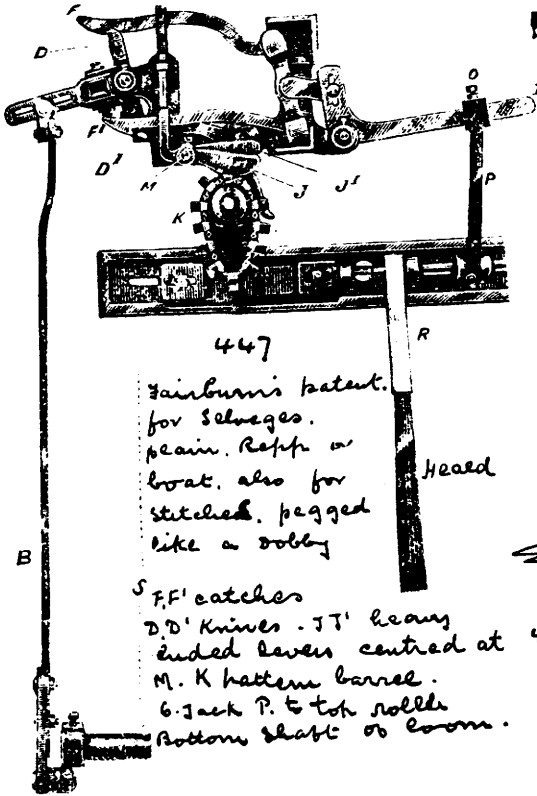 F
D
O
F'
D'
M
J
J'
P
K
447
R
Fairburn's patent.
for Selvages.
plain. Repp or
boat. also for
Stitches. pegged
like a Dobby
Heald
B
S
F,F' catches
D,D' Knives - JJ' heavy
ended levers centred at
M. K pattern barrel.
6. Jack P. to top roller
Bottom shaft of loom.